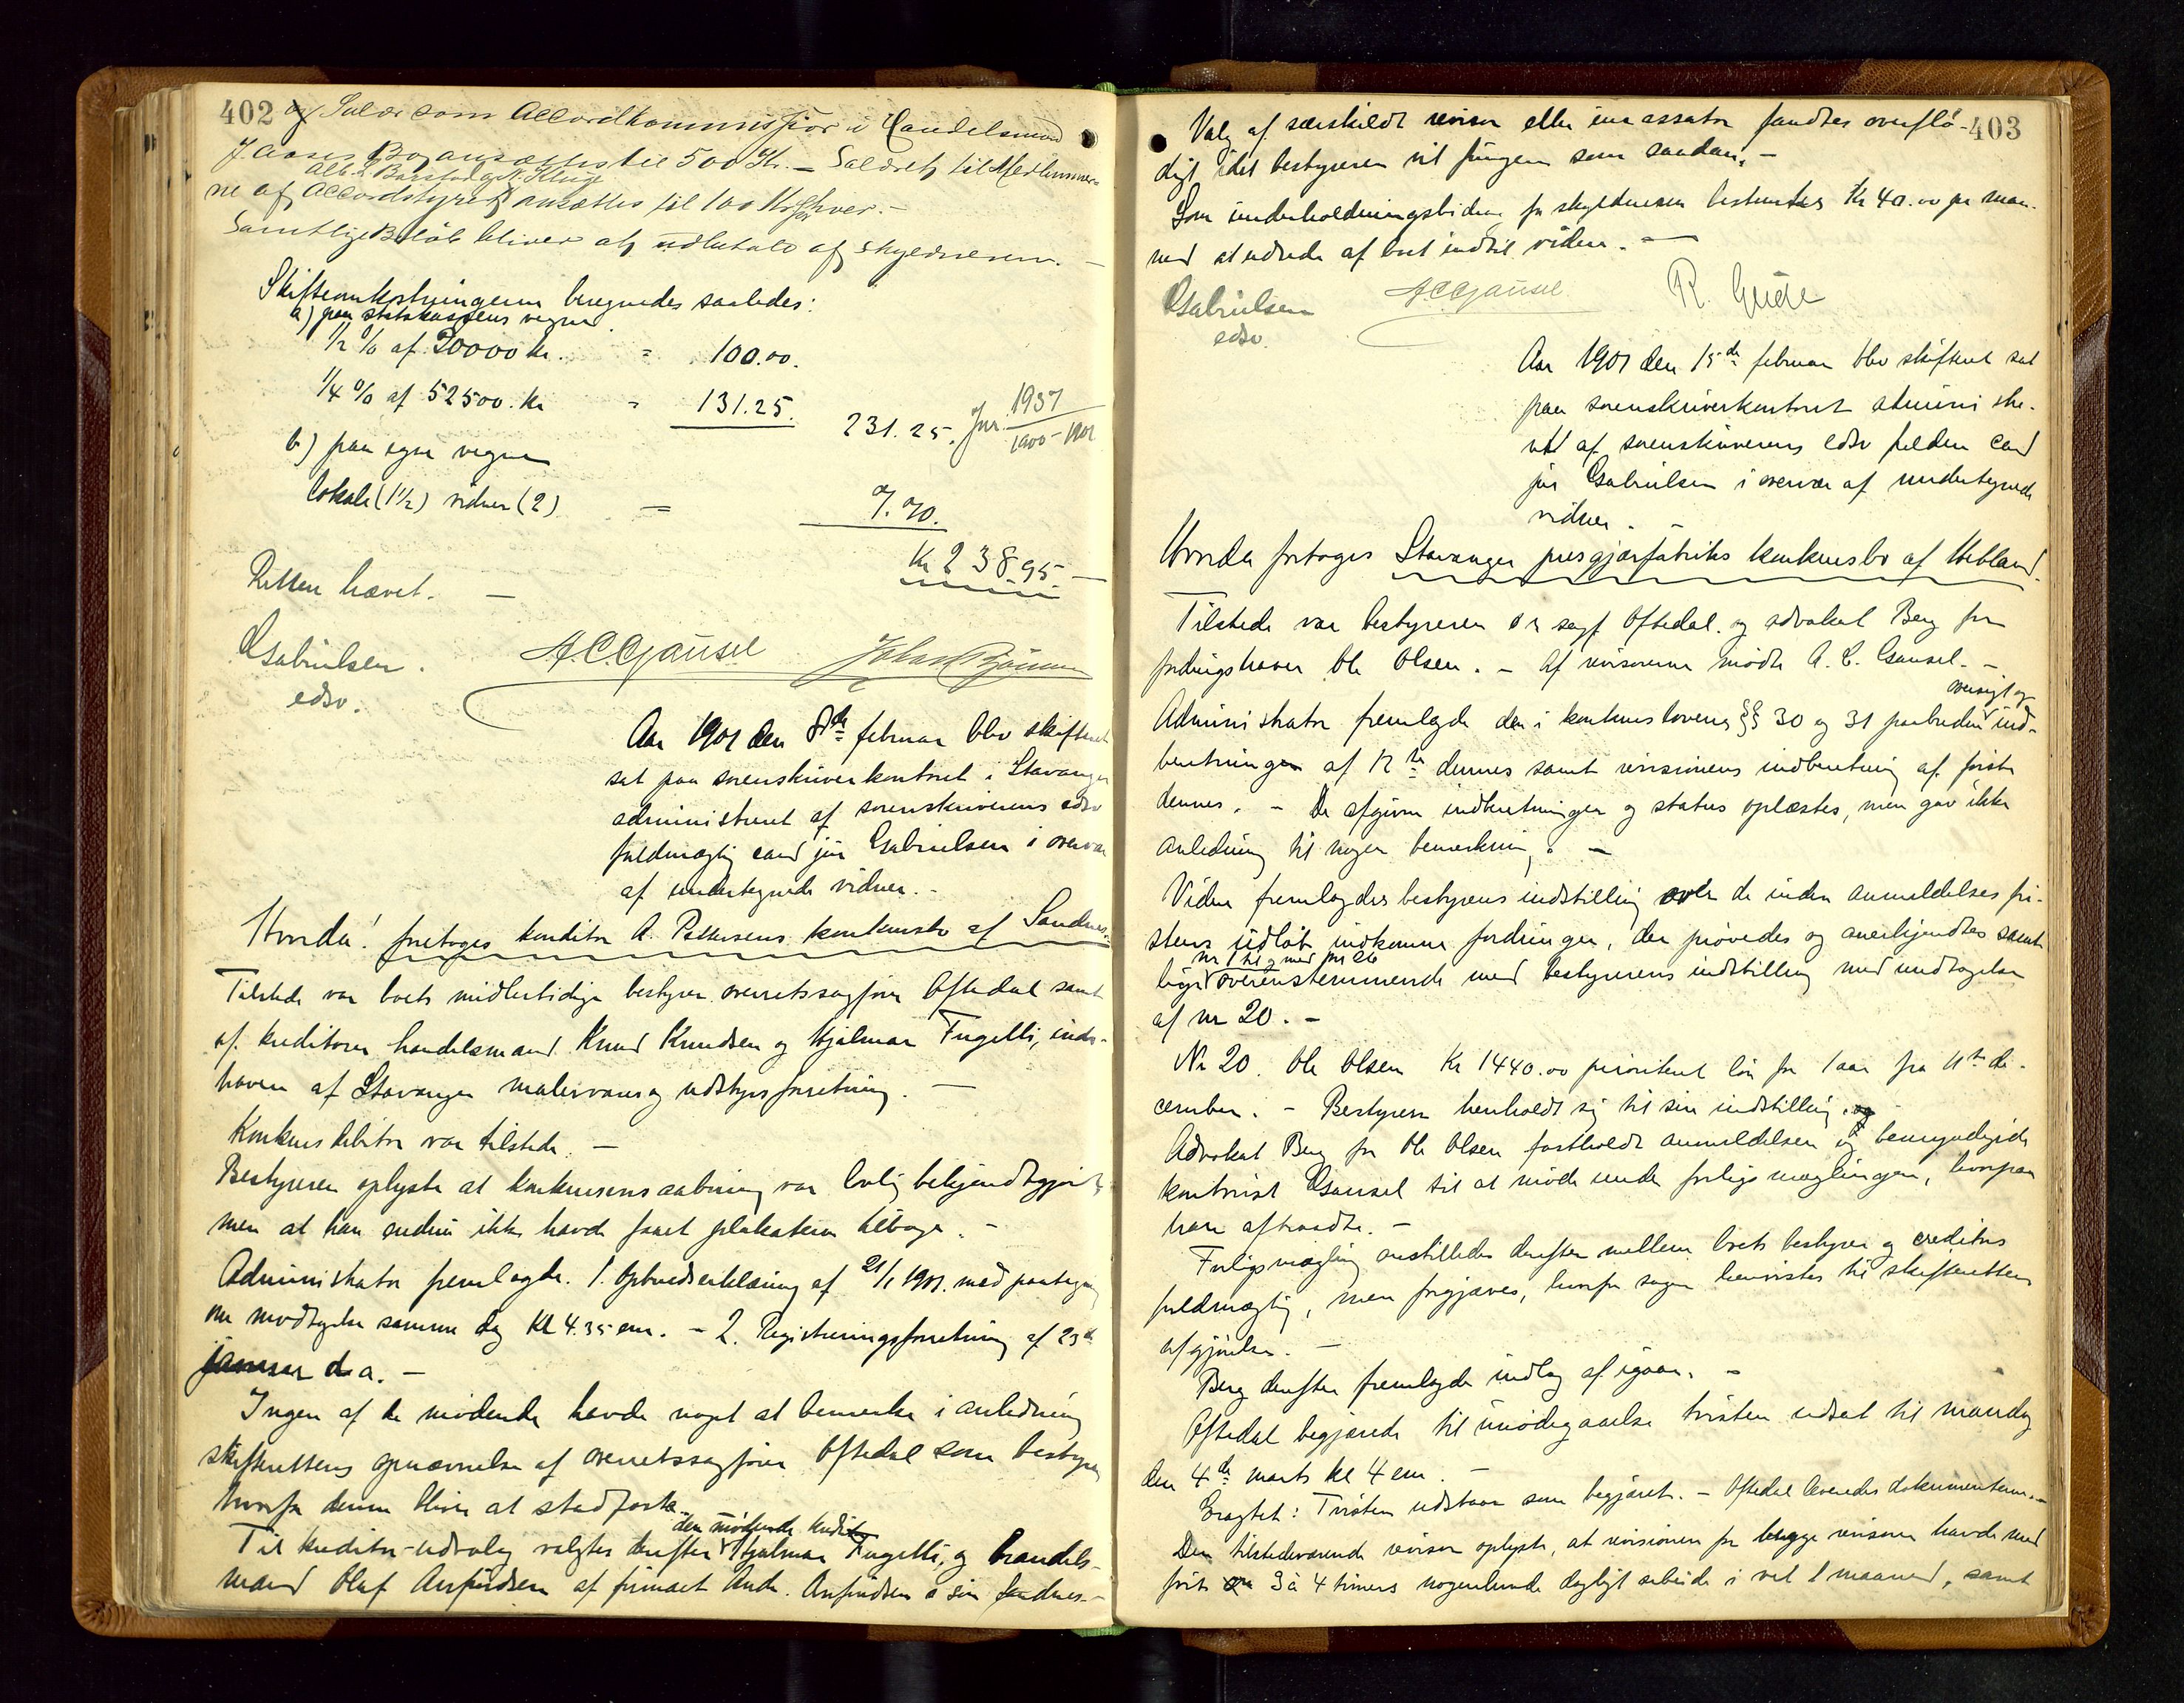 402
og Salær som Accordkommissær i Handelsmand
J. Aases Bo ansættes til 500 Kr. – Salæret til Medlemmer-
Alb. L. Barstad og N. Kluge
ne af Accordstyret ansættes til 100 Kr for hver. –
Samtlige Beløb bliver at udbetale af skyldneren. –
Skifteomkostningerne beregnedes saaledes:
a) paa statskassens vegne
1/2 % af 20000 kr. = 100.00.
1/4 % af 52500. kr = 131.25. 231.25. Jnr. 1937/1900-1901
b) paa egne vegne
lokale (1½) vidner (2) = 7.70.
Kr 238.95. –
Retten hævet. –
Gabrielsen. A.C. Gausel
edsv.
Aar 1901 den 8de februar blev skifteret
sat paa sorenskriverkontoret i Stavanger
administreret af sorenskriverens edsv
fuldmægtig cand jur Gabrielsen i overvær
af undertegnede vidner. –
Hvorda! foretoges konditor A. Pettersens konkursbo af Sandnes.
Tilstede var boets midlertidige bestyrer overretssagfører Oftedal samt
af kreditorer handelsmand Knud Knudsen og Hjalmar Fugelli, inde-
haver af Stavanger malervare og udstyrsforretning. –
Konkursdebitor var tilstede. –
Bestyreren oplyste at konkursens aabning var lovlig bekjendtgjort,
men at han endnu ikke havde faaet plakaterne tilbage. –
Administrator fremlagde. 1. Opbudserklæring af 21/1 1901. med paategning
om modtagelse samme dag kl 4.35 em. – 2. Registreringsforretning af 23de
januar d. a. –
Ingen af de mødende havde noget at bemerke i anledning
skifterettens opnævnelse af overretssagfører Oftedal som bestyrer
hvorfor denne bliver at stadfæste.
den mødende kreditor
Til kreditor-udvalg valgtes derefter Hjalmar Fugelli, og handels-
mand Oluf Anfindsen af firmaet Andr. Anfindsen & søn Sandnes. –
403
Valg af særskildt revisor eller incassator fandtes overflø-
digt idet bestyreren vil fungere som saadan. –
Som underholdningsbidrag for skyldneren bestemtes Kr 40.00 pr maa-
ned at udrede af boet indtil videre. –
Gabrielsen A.C. Gausel R. Gude
edsv.
Aar 1901 den 15de februar blev skifteret sat
paa sorenskriverkontoret administre-
ret af sorenskriverens edsv fuldm cand
jur Gabrielsen i overvær af undertegnede
vidner. –
Hvorda foretoges Stavanger presgjærfabriks konkursbo af Hetland.
Tilstede var bestyreren o r sagf Oftedal. og advokat Berg for
fordringshaver Ole Olsen. – Af revisorerne mødte A. C. Gausel. –
oversigt og
Administrator fremlagde den i konkurslovens §§ 30 og 31 paabudne ind-
beretningen af 12te dennes samt revisionens indberetning af første
dennes. – De afgivne indberetninger og status oplæstes, men gav ikke
anledning til nogen bemerkning. –
Videre fremlagdes bestyrerens indstilling over de inden anmeldelsesfri-
stens udløb indkomne fordringer, der prøvedes og anerkjendtes samt-
nr 1 til og med nr 26
lige overensstemmende med bestyrerens indstilling med undtagelse
af nr 20. –
Nr 20. Ole Olsen Kr 1440.00 prioriteret løn for 1 aar fra 11te de-
cember. – Bestyreren henholdt sig til sin indstilling. og
Advokat Berg for Ole Olsen fastholdt anmeldelsen og bemyndigede
kontorist Gausel til at møde under forligsmæglingen, hvorpaa
han aftraadte. –
Forligsmægling anstilledes derefter mellem boets bestyrer og creditors
fuldmægtig, men forgjæves, hvorfor sagen henvistes til skifterettens
afgjørelse. –
Berg derefter fremlagde indlæg af igaar. –
Oftedal begjærede til imødegaaelse tvisten udsat til mandag
den 4de marts kl 4 em. –
Eragtet: Tvisten udstaar som begjæret. – Oftedal leveredes dokumenterne. –
Den tilstedeværende revisor oplyste, at revisionen for begge revisorer havde med
ført 3 à 4 timers nogenlunde dagligt arbeide i vel 1 maaned, samt